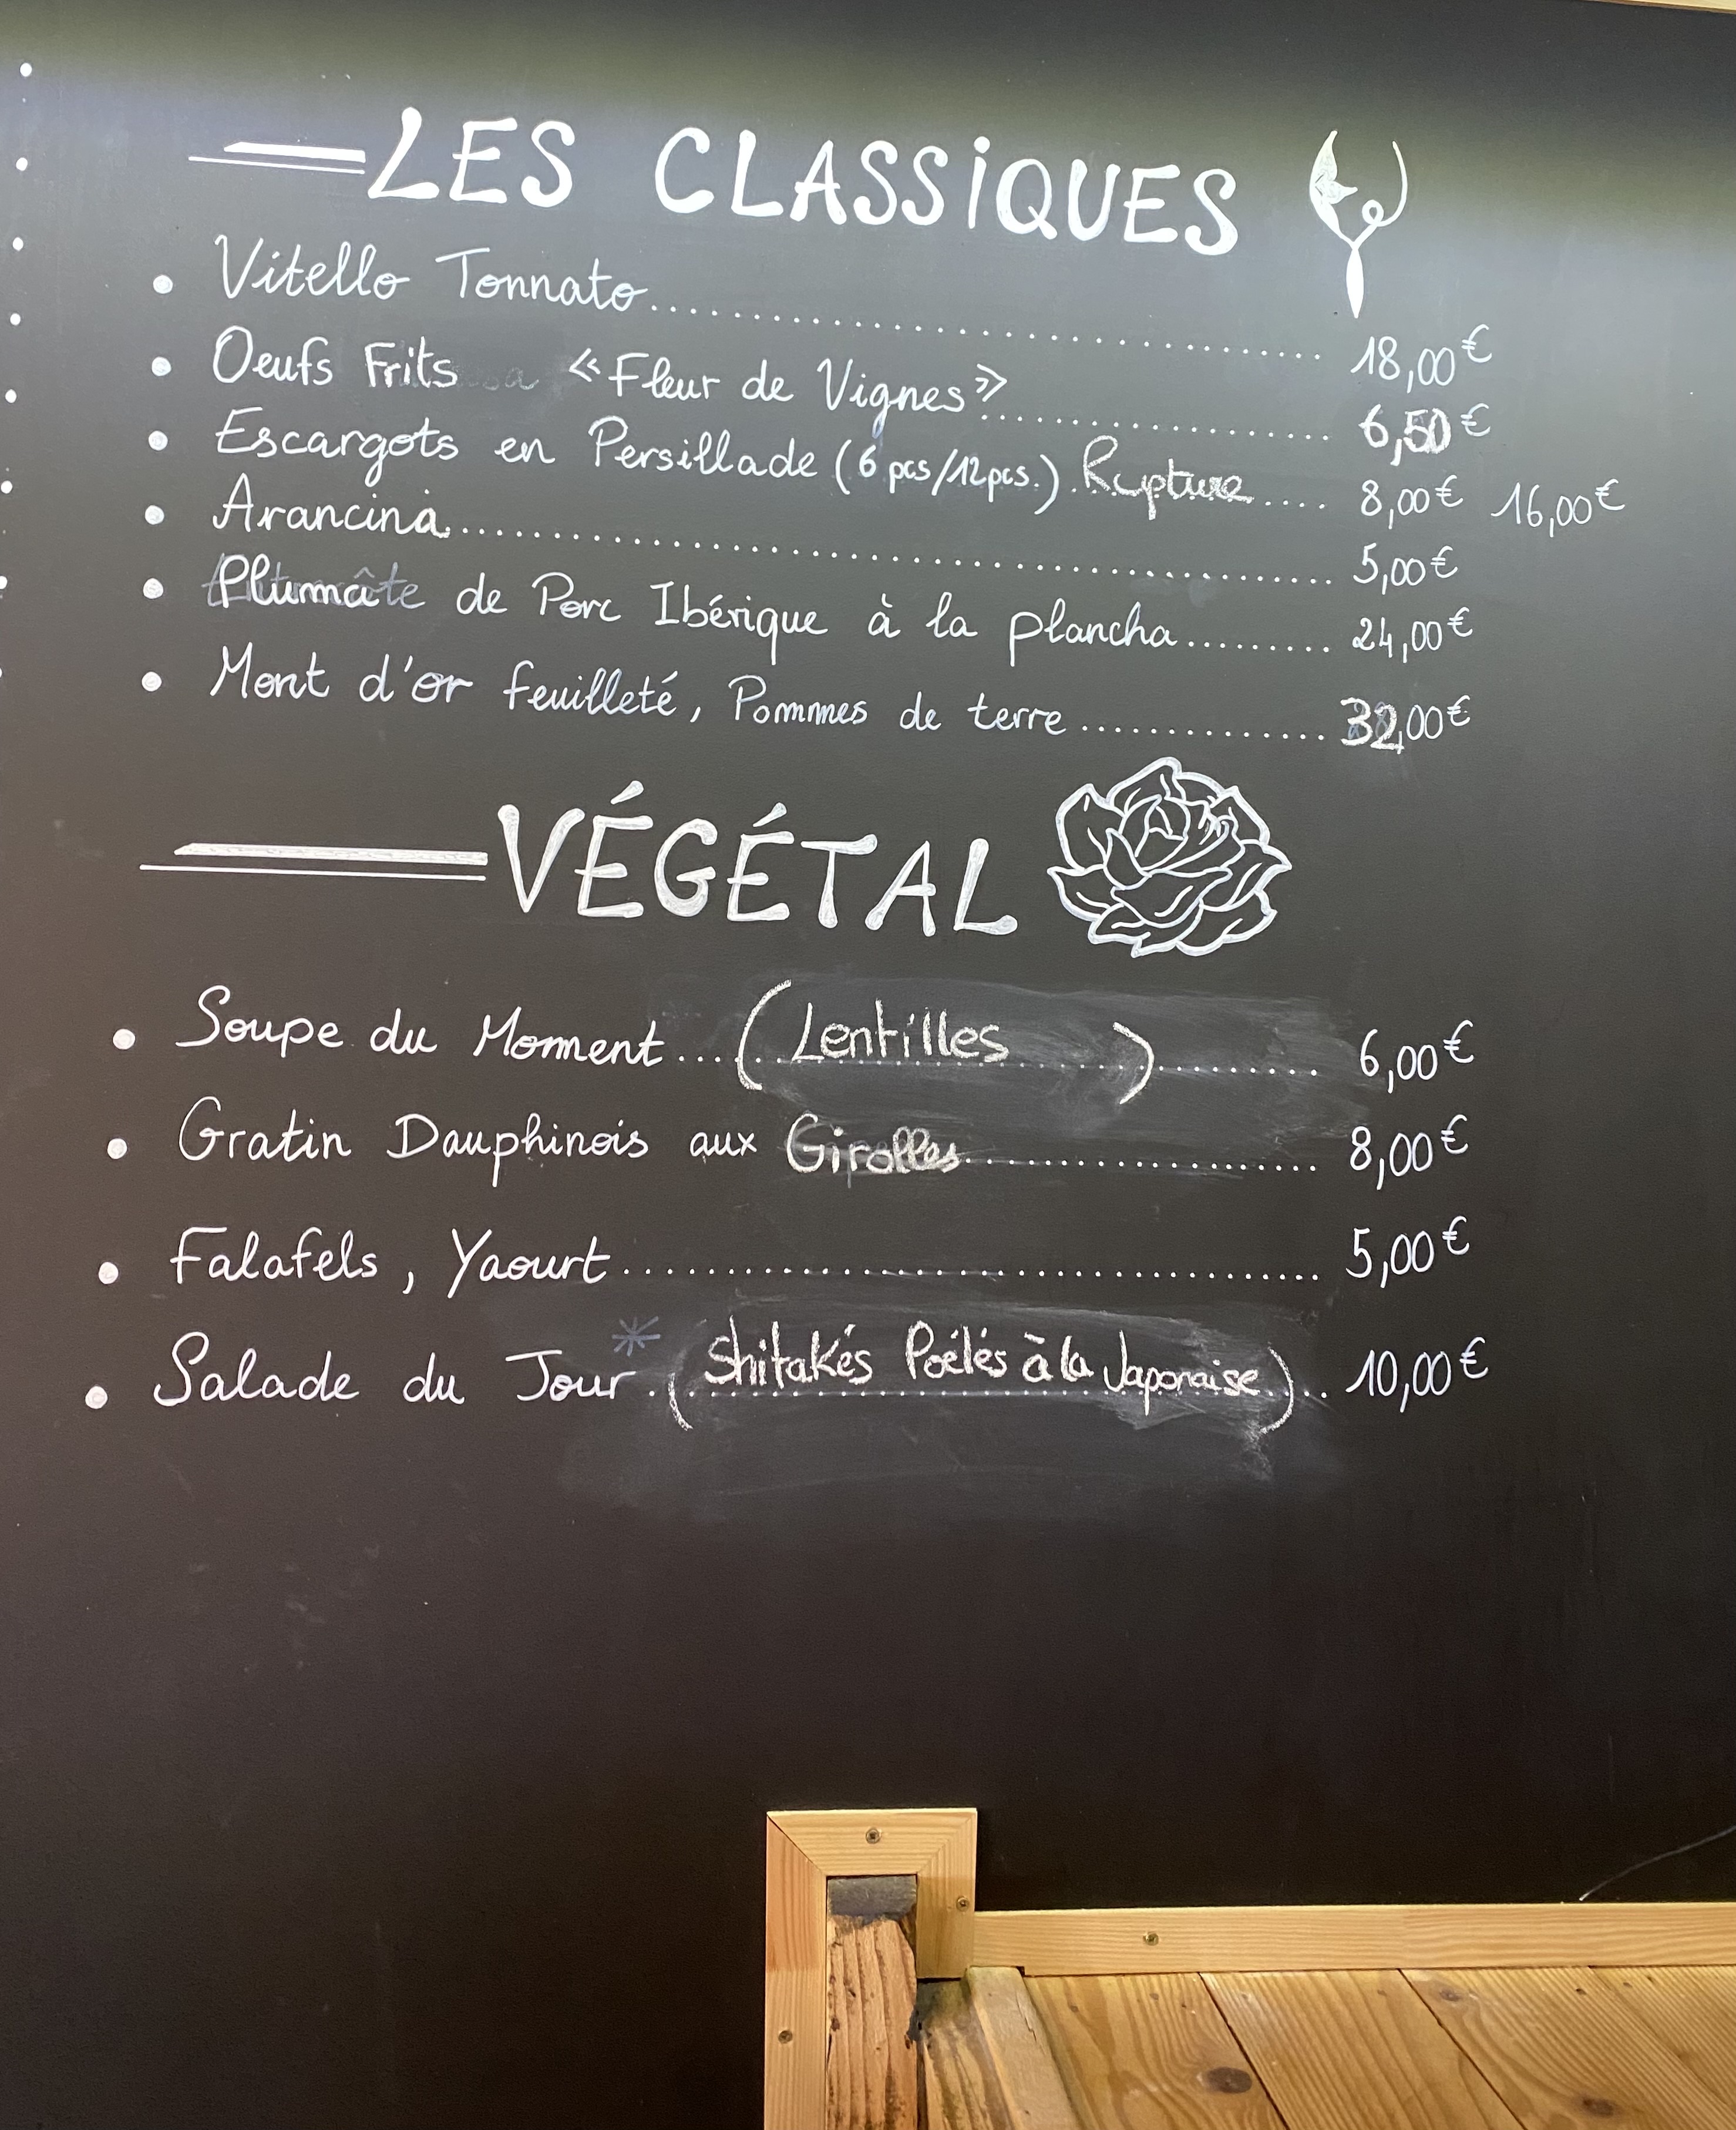 LES CLASSIQUES
• Vitello Tonnato.......................... 18,00€
• Oeufs Frits «Fleur de Vignes».......................... 6,50€
• Escargots en Persillade (6 pcs/12pcs.) Rupture.... 8,00€ 16,00€
• Arancina.......................... 5,00€
• Pluma de Porc Ibérique à la plancha......... 24,00€
• Mont d'or feuilleté, Pommes de terre.............. 32,00€
VÉGÉTAL
• Soupe du Moment...(Lentilles)........ 6,00€
• Gratin Dauphinois aux Girolles.................. 8,00€
• Falafels, Yaourt.......................... 5,00€
• Salade du Jour* .(Shitakés Poêlés à la Japonaise).. 10,00€